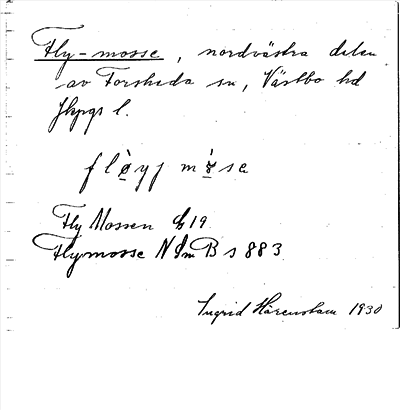 Fly-mosse, nordvästra delen
av Forsheda sn, Västbo hd
Jkpgs l.
fl
Fly Mossen
Flymosse NSmB s 883
Ingrid Härenstam 1930